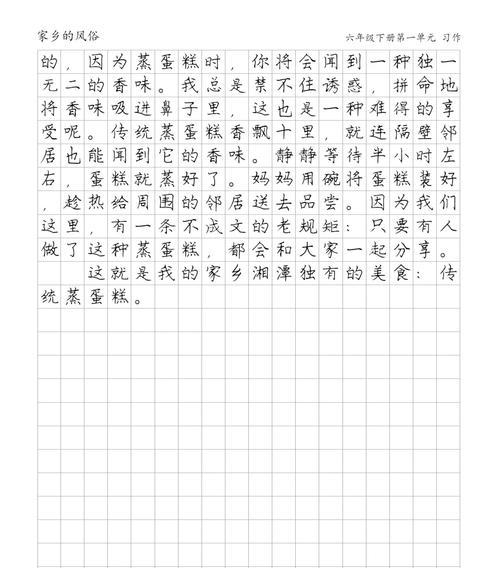 家乡的风俗
六年级下册第一单元 习作
的，因为蒸蛋糕时，你将会闻到一种独一
无二的香味。我总是禁不住诱惑，拼命地
将香味吸进鼻子里，这也是一种难得的享
受呢。传统蒸蛋糕香飘十里，就连隔壁邻
居也能闻到它的香味。静静等待半小时左
右，蛋糕就蒸好了。妈妈用碗将蛋糕装好
，趁热给周围的邻居送去品尝。因为我们
这里，有一条不成文的老规矩：只要有人
做了这种蒸蛋糕，都会和大家一起分享。
这就是我的家乡湘潭独有的美食：传
统蒸蛋糕。